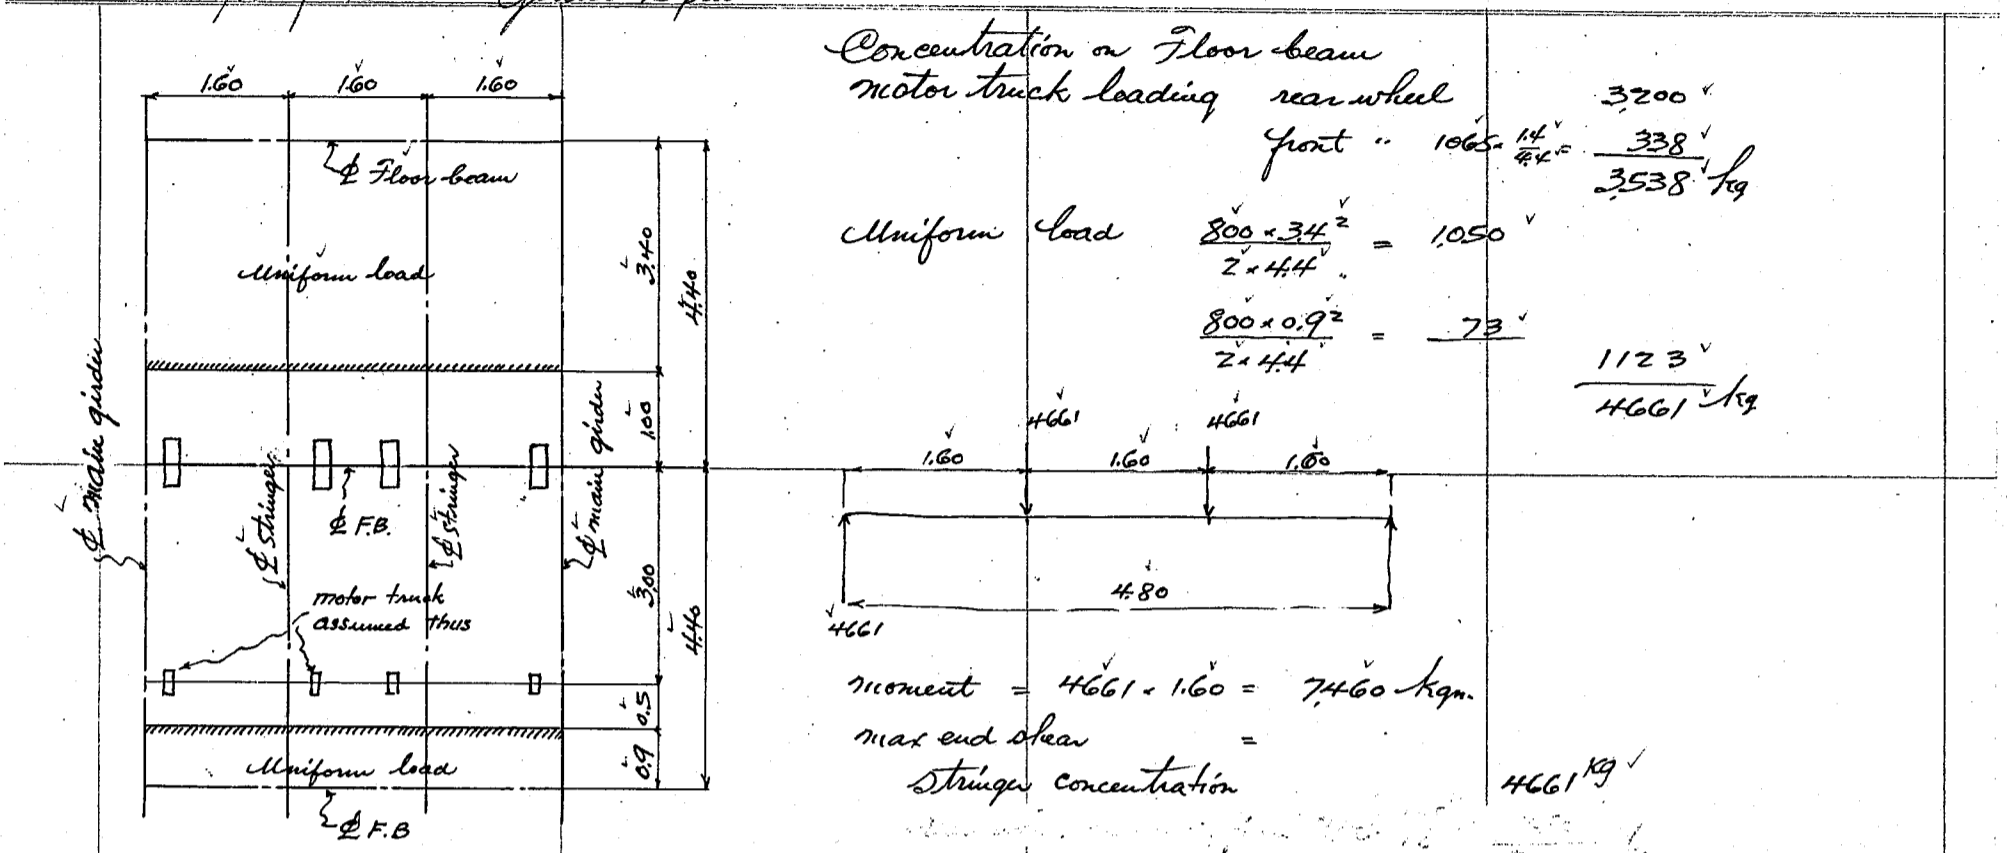 1.60 1.60 1.60
℄ Floor beam
Uniform load
3.40
4.40
℄ main girder
1.00
℄ stringer
℄ F.B.
℄ stringer
℄ main girder
3.00
4.40
motor truck
assumed thus
0.5
Uniform load
0.9
℄ F.B
Concentration on Floor beam
motor truck loading rear wheel 3200
front " 1065 × 1.4/4.4 = 338
3538 kg
Uniform load 800 × 3.4² / 2 × 4.4 = 1050
800 × 0.9² / 2 × 4.4 = 73
1123
4661 kg
4661 4661
1.60 1.60 1.60
4.80
4661
moment = 4661 × 1.60 = 7,460 kgm.
max end shear =
stringer concentration 4661 kg